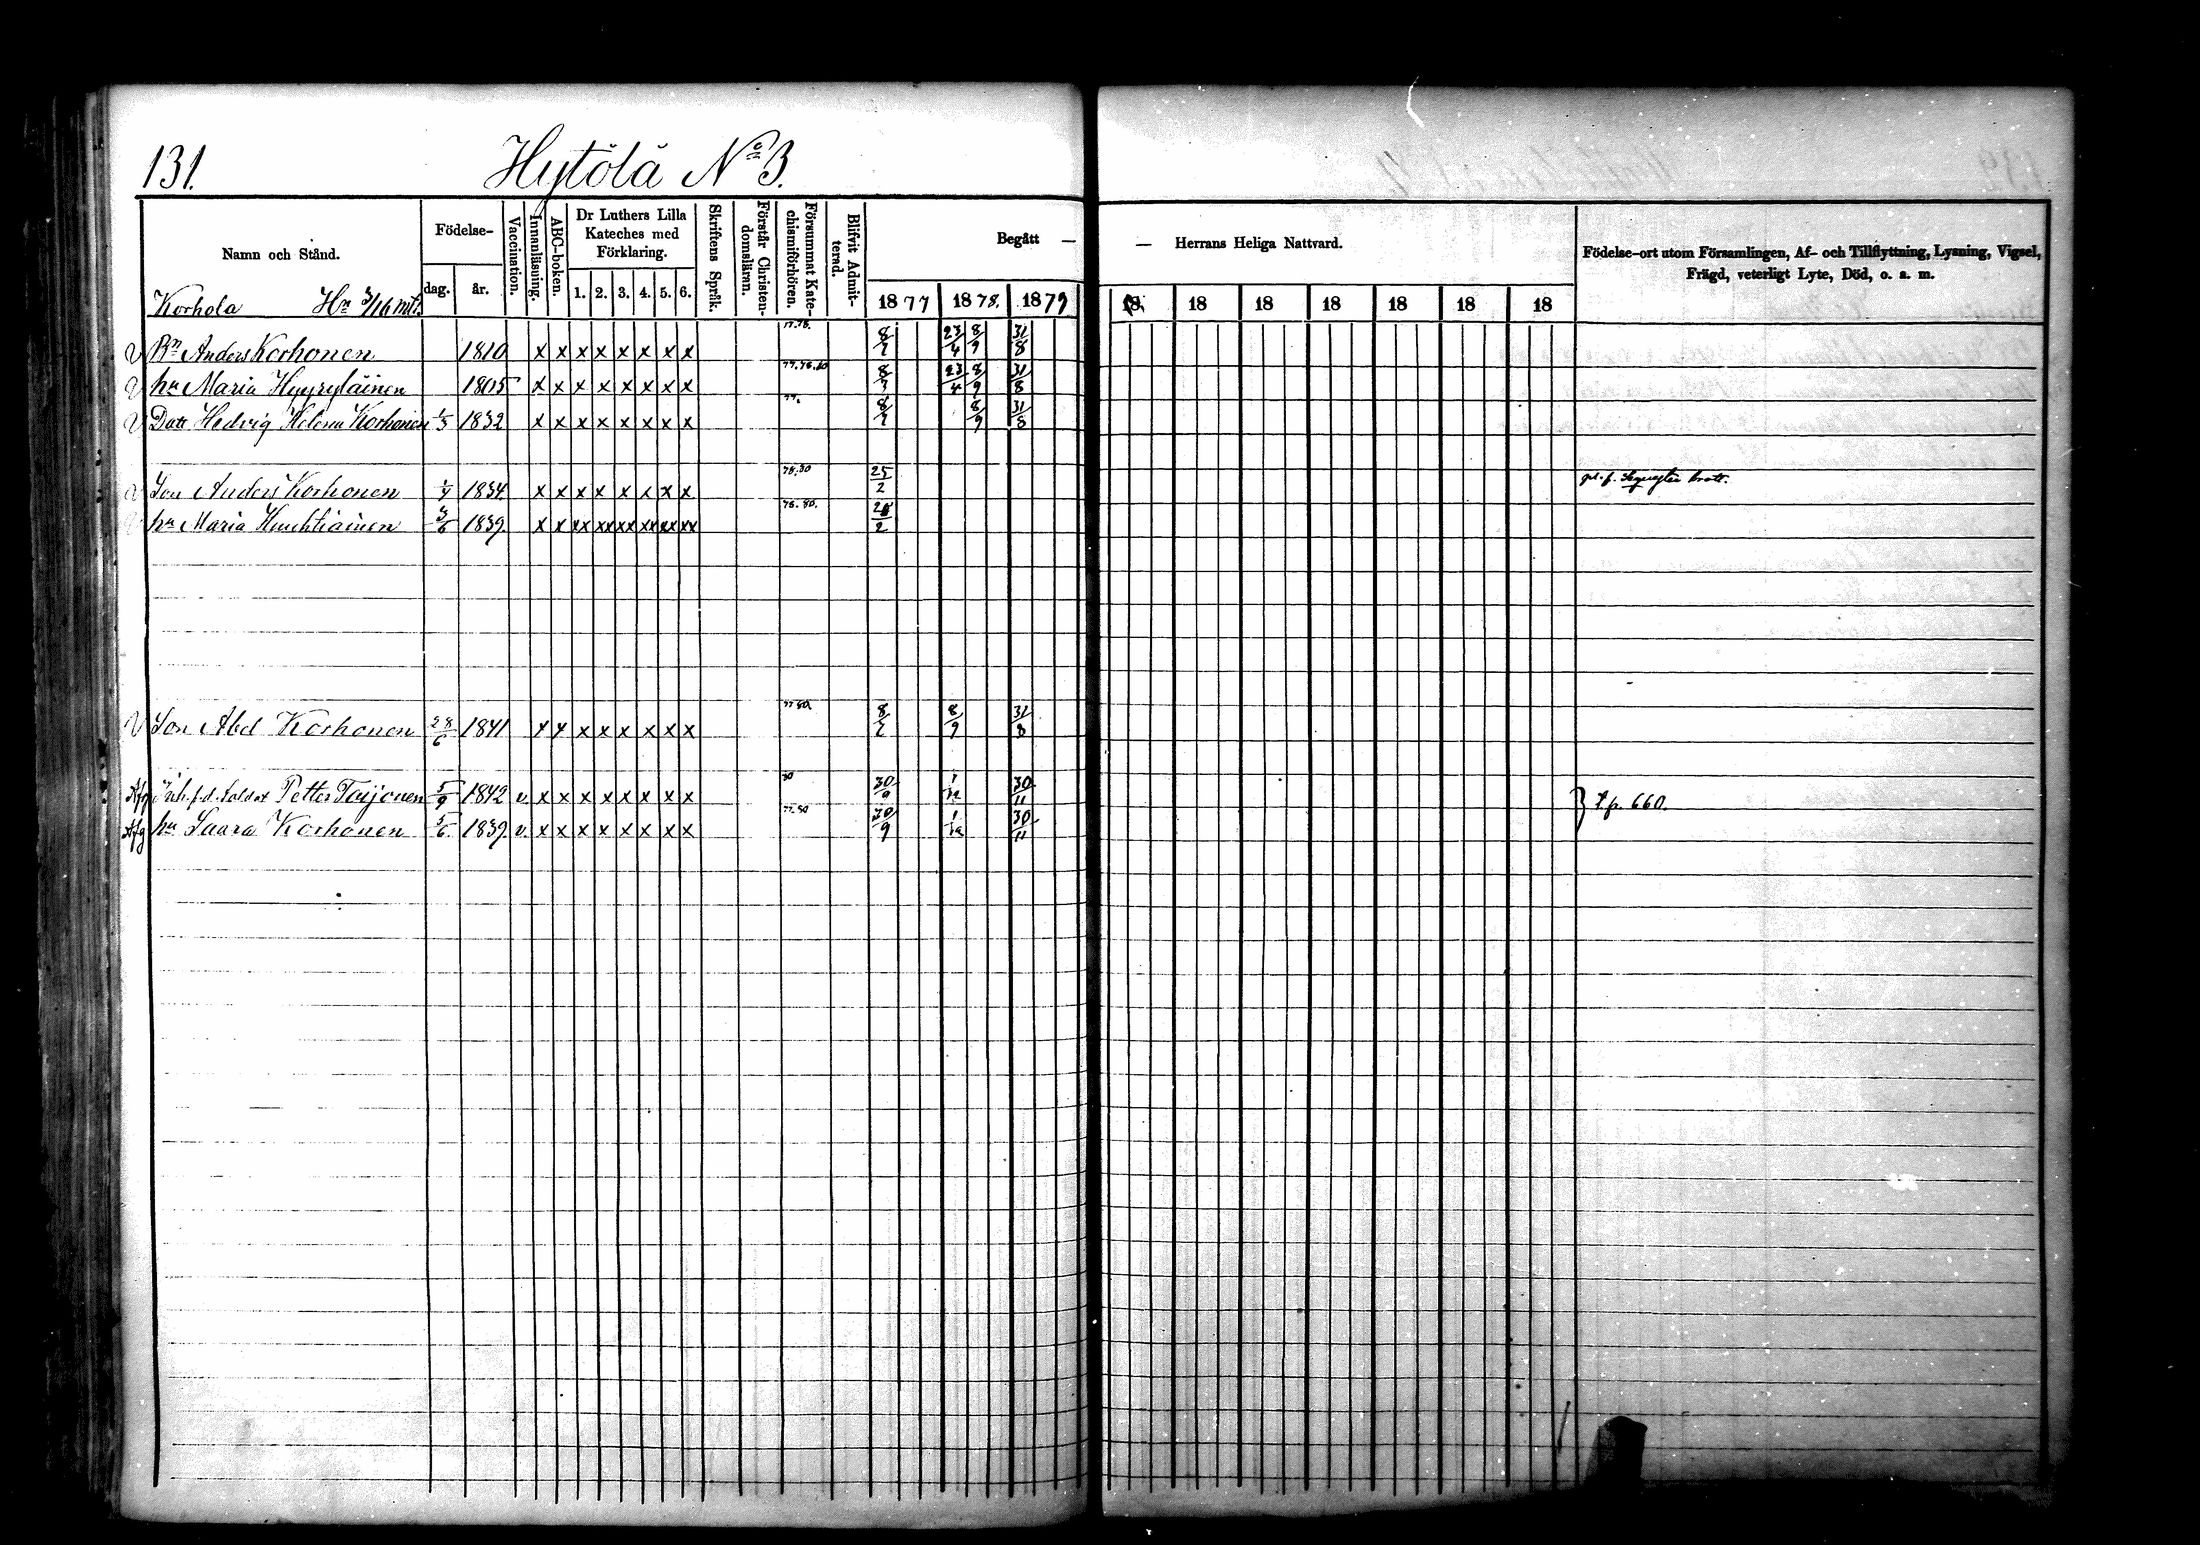 131. Hytölä No 3.
Namn och Stånd. Födelse- dag. år. Vaccination. Innanläsning. ABC-boken. Dr Luthers Lilla Kateches med Förklaring. 1. 2. 3. 4. 5. 6. Skriftens Språk. Förstår Christendomsläran. Försummat Katechismiförhören. Blifvit Admitterad. Begått — — Herrans Heliga Nattvard. Födelse-ort utom Församlingen, Af- och Tillflyttning, Lysning, Vigsel, Frägd, veterligt Lyte, Död, o. s. m.
Korhola 1877 1878. 1879 18 18 18 18 18 18
Bn Anders Korhonen 1810 x x x x x x x x 77.78. 8/7 23/4 8/9 31/8
hu Maria Hyyryläinen 1805 x x x x x x x x 8/7 23/4 8/9 31/8
Dott Hedvig Helena Korhonen 1/3 1832 x x x x x x x x 77. 8/7 8/9 31/8
Son Anders Korhonen 1834. x x x x x x x x 78.80 25/2
hu Maria Huuhtiainen 3/6 1839. x x xx xx xx xx xx xx 78.80. 2
Son Abel Korhonen 28/6 1841 x x x x x x x x 77 80. 8/7 8/9 31/8
Afg Inh. f.d. Soldat Petter Taijonen 5/9 1842 v. x x x x x x x x 80 30/9 30/11
Afg hu Saara Korhonen 5/6. 1839. v. x x x x x x x x 77.80 30/9 30/11
} t.p. 660.